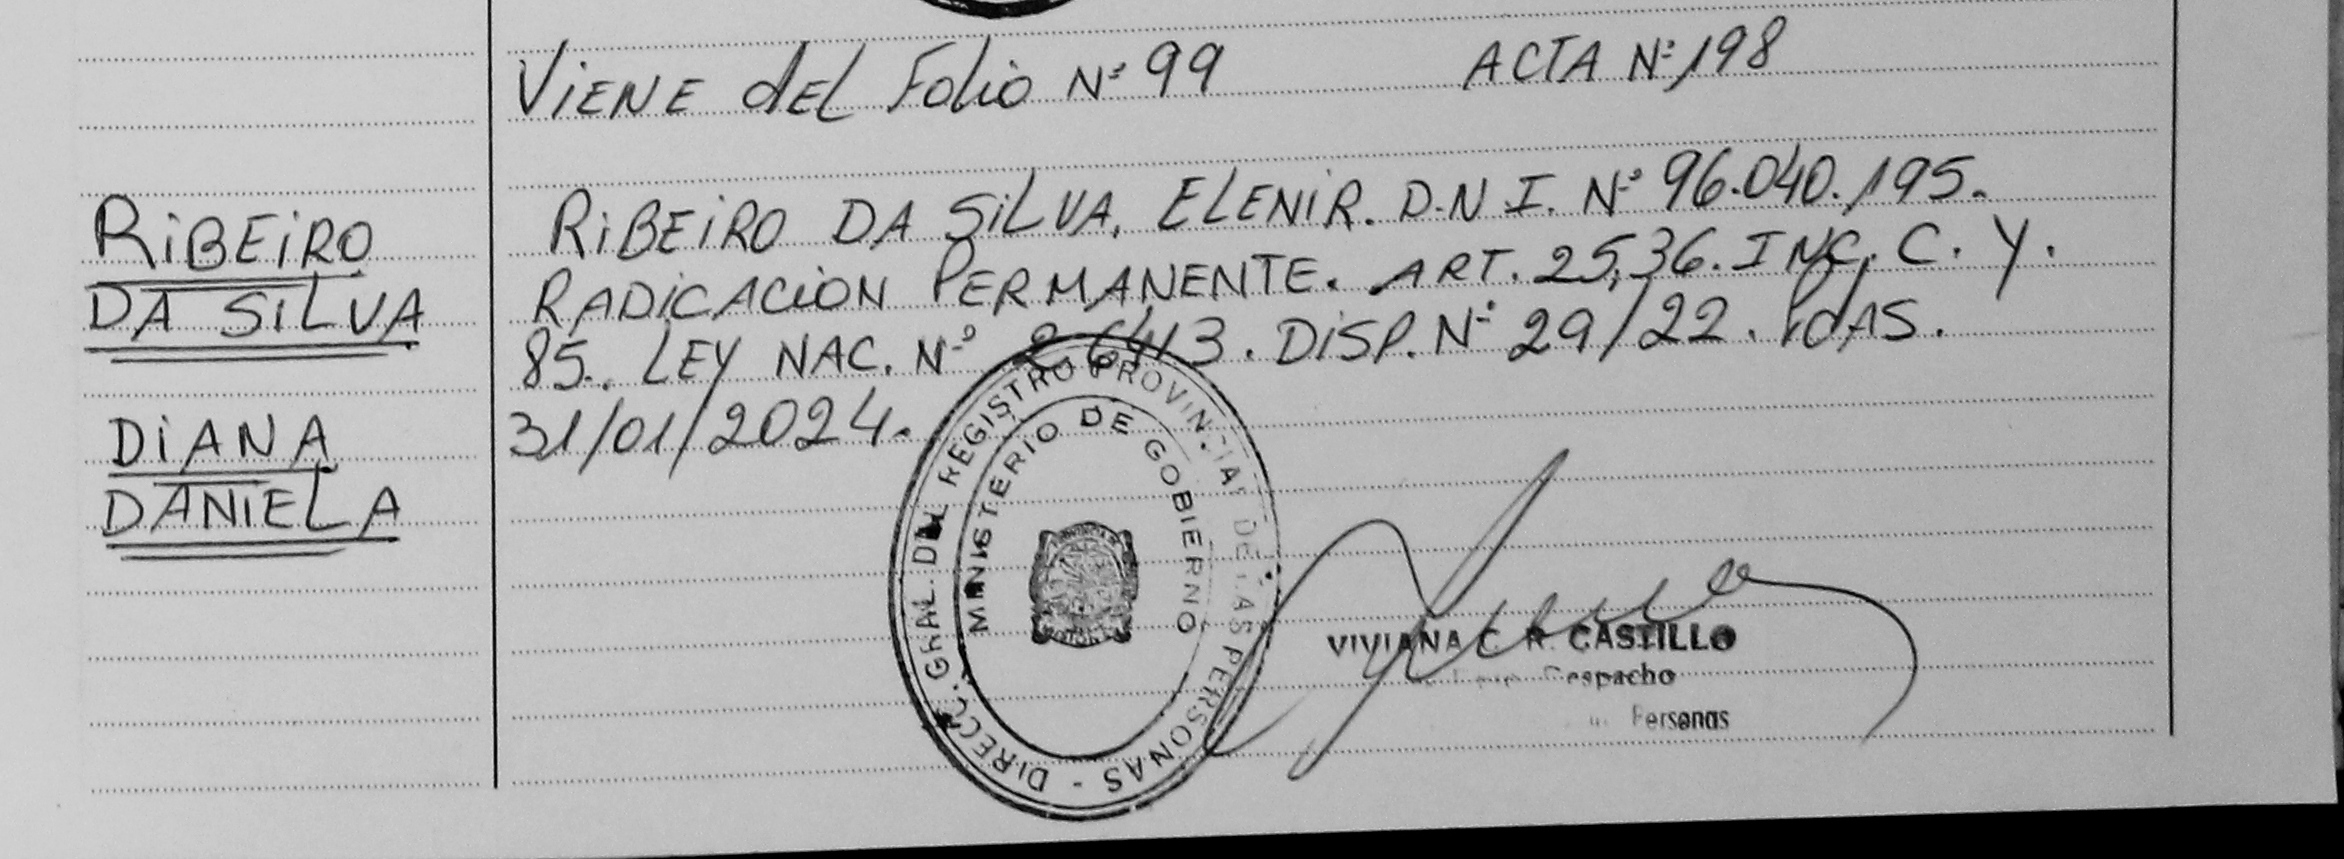 Viene del Folio Nº 99 ACTA Nº 198
RiBEiRO
DA SiLVA
DiANA
DANiELA
RiBEiRO DA SiLVA, ELENiR. D.N.I. Nº 96.040.195.
RADiCACiON PERMANENTE. ART. 25,36. INC. C. Y.
85. LEY NAC. Nº 26413. DiSP. Nº 29/22. PdAS.
31/01/2024.
DIRECC. GRAL. DEL REGISTRO PROVINCIAL DE LAS PERSONAS -
MINISTERIO DE GOBIERNO
VIVIANA C. R. CASTILLO
Despacho
Personas